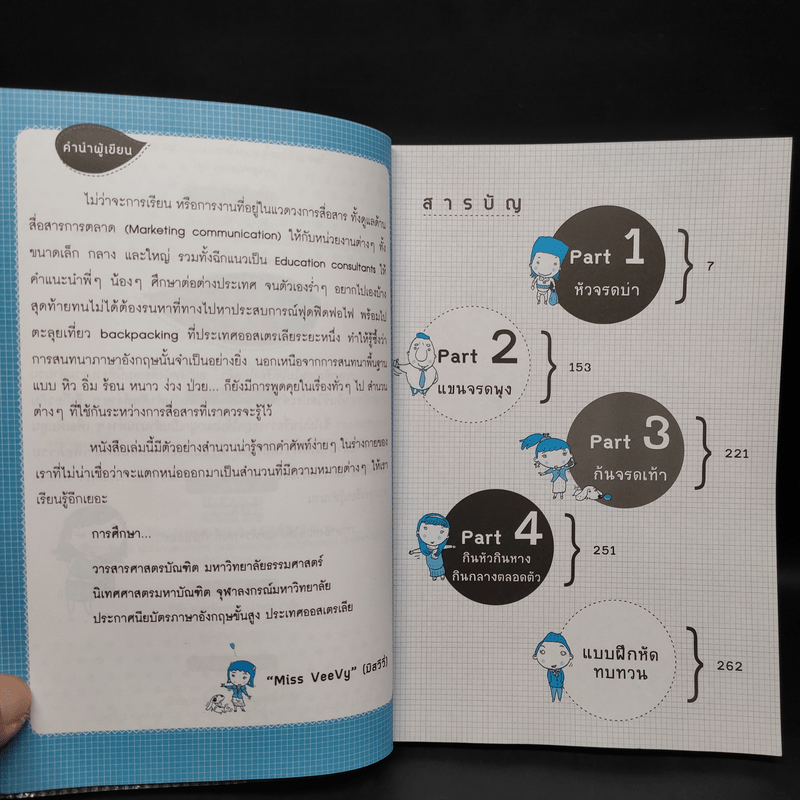 คำนำผู้เขียน
ไม่ว่าจะการเรียน หรือการงานที่อยู่ในแวดวงการสื่อสาร ทั้งดูแลด้าน
สื่อสารการตลาด (Marketing communication) ให้กับหน่วยงานต่างๆ ทั้ง
ขนาดเล็ก กลาง และใหญ่ รวมทั้งฉีกแนวเป็น Education consultants ให้
คำแนะนำพี่ๆ น้องๆ ศึกษาต่อต่างประเทศ จนตัวเองร่ำๆ อยากไปเองบ้าง
สุดท้ายทนไม่ได้ต้องรนหาที่ทางไปหาประสบการณ์ฟุดฟิดฟอไฟ พร้อมไป
ตะลุยเที่ยว backpacking ที่ประเทศออสเตรเลียระยะหนึ่ง ทำให้รู้ซึ้งว่า
การสนทนาภาษาอังกฤษนั้นจำเป็นอย่างยิ่ง นอกเหนือจากการสนทนาพื้นฐาน
แบบ หิว อิ่ม ร้อน หนาว ง่วง ป่วย... ก็ยังมีการพูดคุยในเรื่องทั่วๆ ไป สำนวน
ต่างๆ ที่ใช้กันระหว่างการสื่อสารที่เราควรจะรู้ไว้
หนังสือเล่มนี้มีตัวอย่างสำนวนน่ารู้จากคำศัพท์ง่ายๆ ในร่างกายของ
เราที่ไม่น่าเชื่อว่าจะแตกหน่อออกมาเป็นสำนวนที่มีความหมายต่างๆ ให้เรา
เรียนรู้อีกเยอะ
การศึกษา...
วารสารศาสตรบัณฑิต มหาวิทยาลัยธรรมศาสตร์
นิเทศศาสตรมหาบัณฑิต จุฬาลงกรณ์มหาวิทยาลัย
ประกาศนียบัตรภาษาอังกฤษขั้นสูง ประเทศออสเตรเลีย
“Miss VeeVy” (มิสวีวี่)
สารบัญ
Part 1
หัวจรดบ่า
7
Part 2
แขนจรดพุง
153
Part 3
ก้นจรดเท้า
221
Part 4
กินหัวกินหาง
กินกลางตลอดตัว
251
แบบฝึกหัด
ทบทวน
262